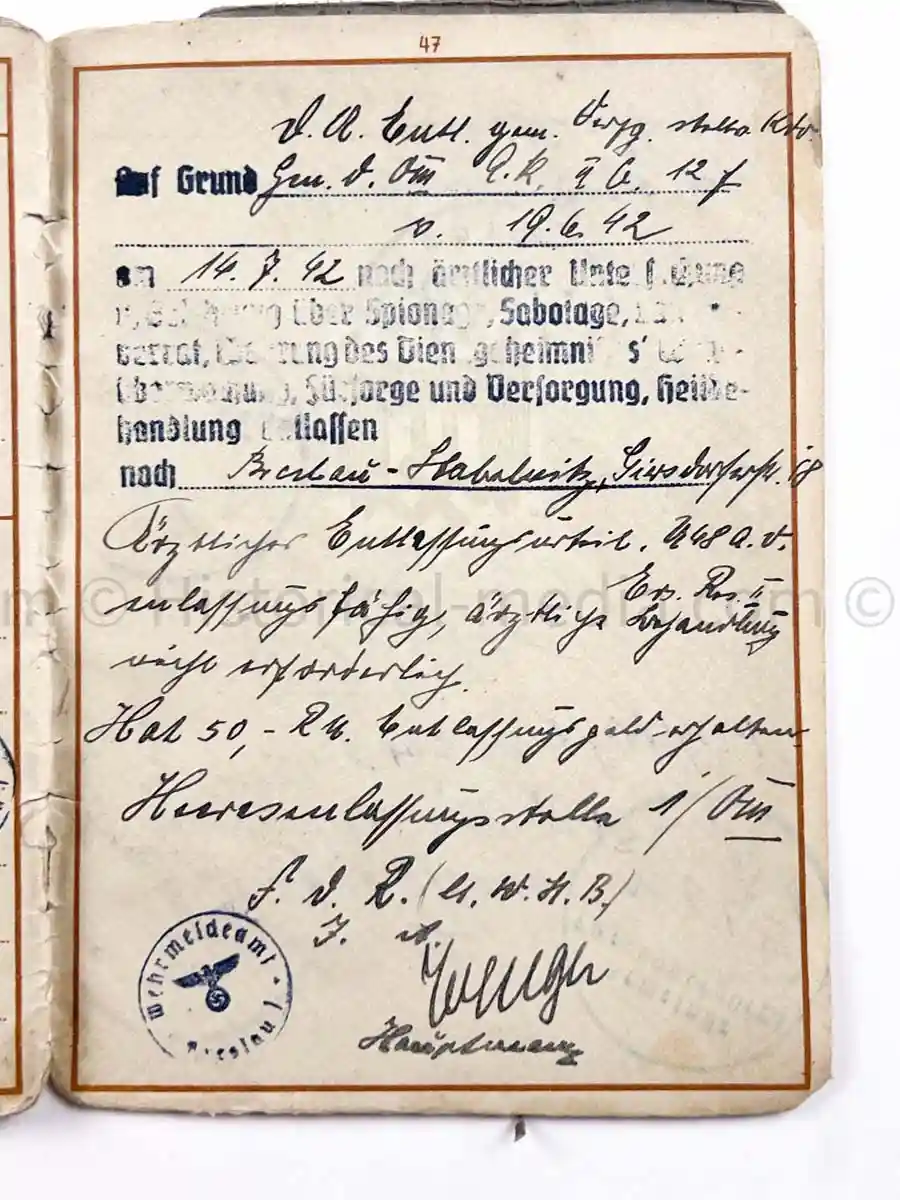 47
D. A. Entl. gem. Verfg. stellv. Kdr.
Auf Grund Gen. d. VIII A.K.
v. 19.6.42
am 14.7.42 nach ärztlicher Untersuchung
u. Belehrung über Spionage, Sabotage,
verrat, Wahrung des Dienstgeheimnisses
Fürsorge und Versorgung, Heilbe-
handlung entlassen
nach Breslau - Habelwitz, Girsdorferstr. 18
Ärztliches Entlassungsurteil.
Ers. Res. II
enlassungsfähig, ärztliche Behandlung
nicht erforderlich.
Hat 50,- RM. Entlassungsgeld erhalten
Heeresenlassungsstelle 1/VIII
F. d. R. (W.H.B.)
I. A.
Hauptmann
Wehrmeldeamt Breslau 1
© Historical-media.com ©